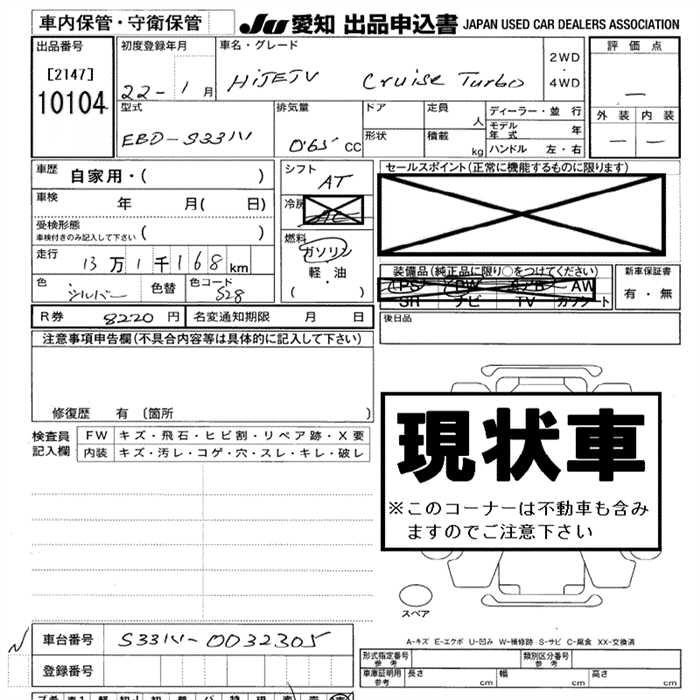 車内保管・守衛保管
JU 愛知 出品申込書 JAPAN USED CAR DEALERS ASSOCIATION
出品番号
[2147]
10104
初度登録年月
22-1月
車名・グレード
HiJETV Cruise Turbo
2WD
・
4WD
評価点
—
外装 内装
— —
型式
EBD-S331V
排気量
0.65 CC
ドア
形状
定員 人
積載 kg
ディーラー・並行
モデル年式 年
ハンドル 左・右
車歴 自家用・( )
車検 年 月( 日)
受検形態
車検付きのみ記入して下さい ( )
走行 13万1千168km
色 シルバー 色替 色コード S28
シフト
AT
冷房
燃料
ガソリン
軽・油
( ・ )
セールスポイント(正常に機能するものに限ります)
装備品(純正品に限り○をつけてください)
PS PW AW
SR ナビ TV カセット
新車保証書
有・無
R券 8220円 名変通知期限 月 日
後日品
注意事項申告欄(不具合内容等は具体的に記入して下さい)
修復歴 有 〔箇所 〕
検査員記入欄
FW キズ・飛石・ヒビ割・リペア跡・X要
内装 キズ・汚レ・コゲ・穴・スレ・キレ・破レ
現状車
※このコーナーは不動車も含み
ますのでご注意下さい
スペア
A-キズ E-エクボ U-凹み W-補修跡 S-サビ C-腐食 XX-交換済
車台番号 S331V-0032305
登録番号
形式指定番号 参考
類別区分番号 参考
車庫証明用 参考 長さ cm 幅 cm 高さ cm